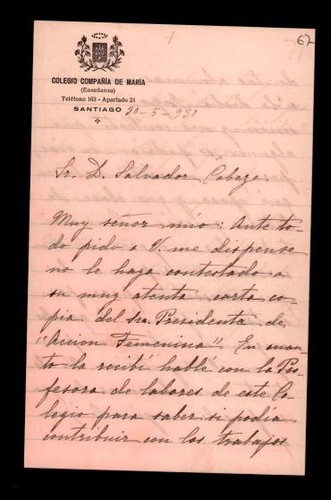 67
COLEGIO COMPAÑÍA DE MARÍA
(Enseñanza)
Teléfono 163 - Apartado 21
SANTIAGO 20-5-931
Sr. D. Salvador Cabeza
Muy señor mio: Ante to-
do pido a V. me dispense
no le haya contestado a
su muy atenta carta co-
pia del sra. Presidenta de
"Accion Femenina". En cuan-
to la recibí hablé con la Pro-
fesora de labores de este Co-
legio para saber si podía
contribuir con los trabajos